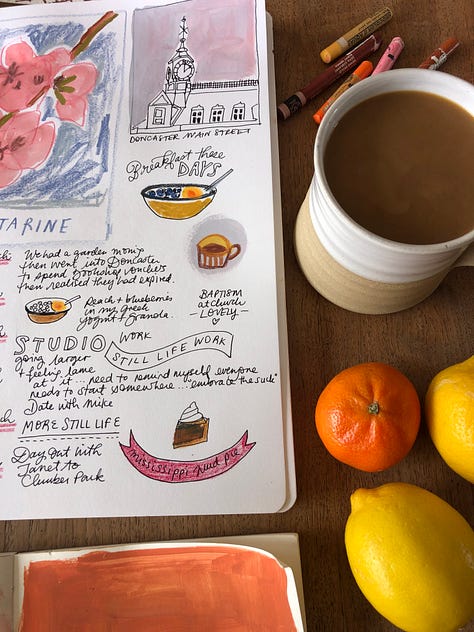 TARINE
DONCASTER MAIN STREET
Breakfast these
DAYS
We had a garden monip
then went into Doncaster
to spend bookshop vouchers
then realised they had expired.
Peach + blueberries
in my greek
yogurt + granola.
BAPTISM
at church
- LOVELY -
STUDIO WORK
STILL LIFE WORK
going larger
+ feeling lame
at it... need to remind myself everyone
needs to start somewhere... "embrace the suck"
Date with Mike
MORE STILL LIFE
Day out with
Janet to
Clumber Park
mississippi mud pie